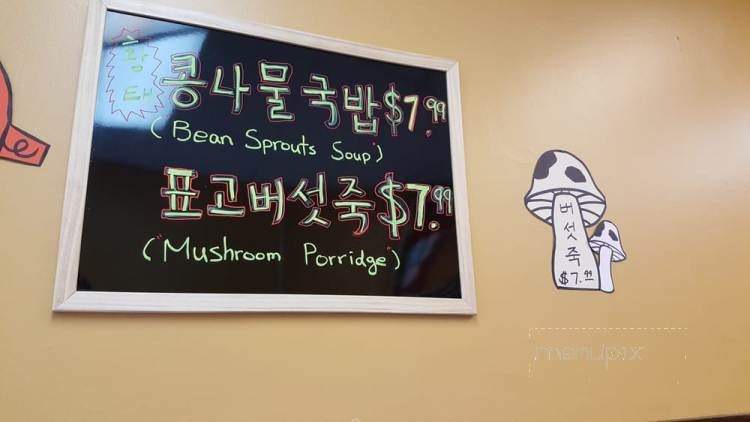 황
태
콩나물국밥 $7.99
(Bean Sprouts Soup")
표고버섯죽 $7.99
("Mushroom Porridge")
버
섯
죽
$7.99
menupix